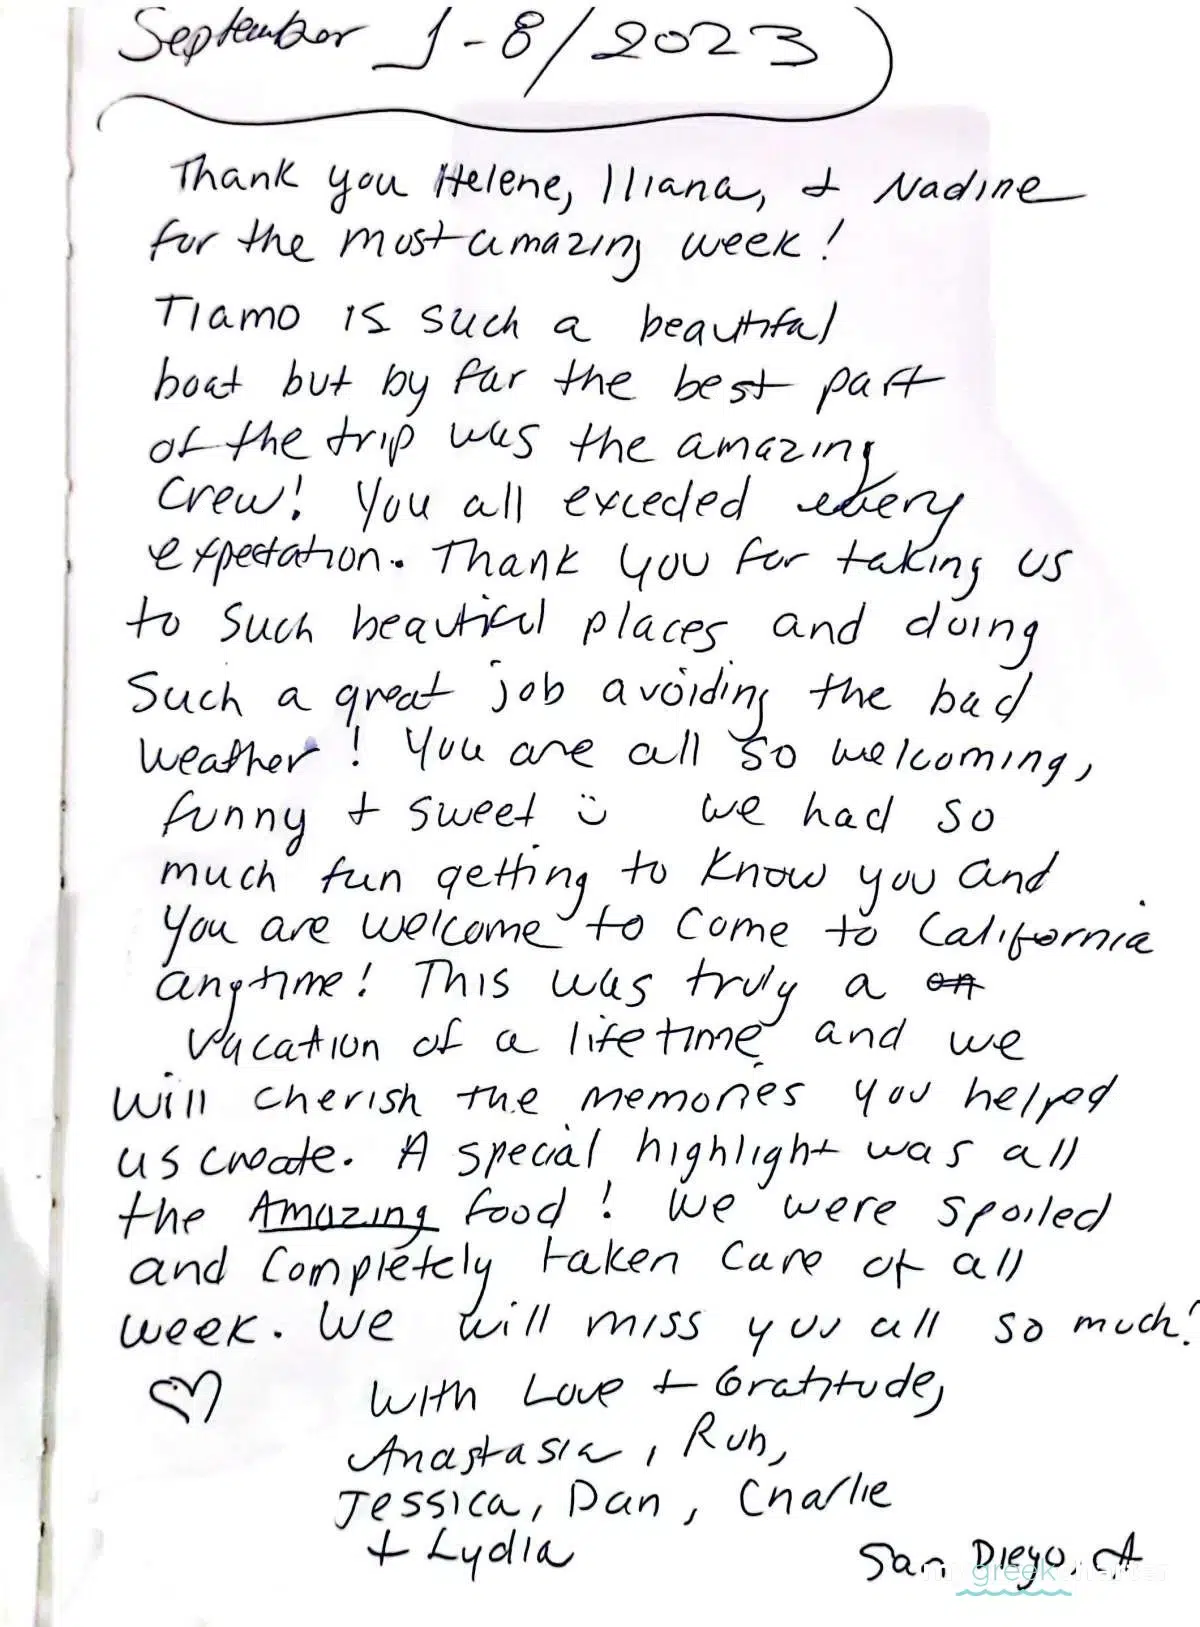 September 1-8/2023
Thank you Helene, Iliana, + Nadine
for the most amazing week!
Tiamo is such a beautiful
boat but by far the best part
of the trip was the amazing
crew! You all exceded every
expectation. Thank you for taking us
to such beautiful places and doing
such a great job avoiding the bad
weather! You are all so welcoming,
funny + sweet ü we had so
much fun getting to know you and
you are welcome to come to California
anytime! This was truly a
vacation of a lifetime and we
will cherish the memories you helped
us create. A special highlight was all
the Amazing food! We were spoiled
and completely taken care of all
week. We will miss you all so much!
♡ With Love + Gratitude,
Anastasia, Rob,
Jessica, Dan, Charlie
+ Lydia
San Diego, CA
greek